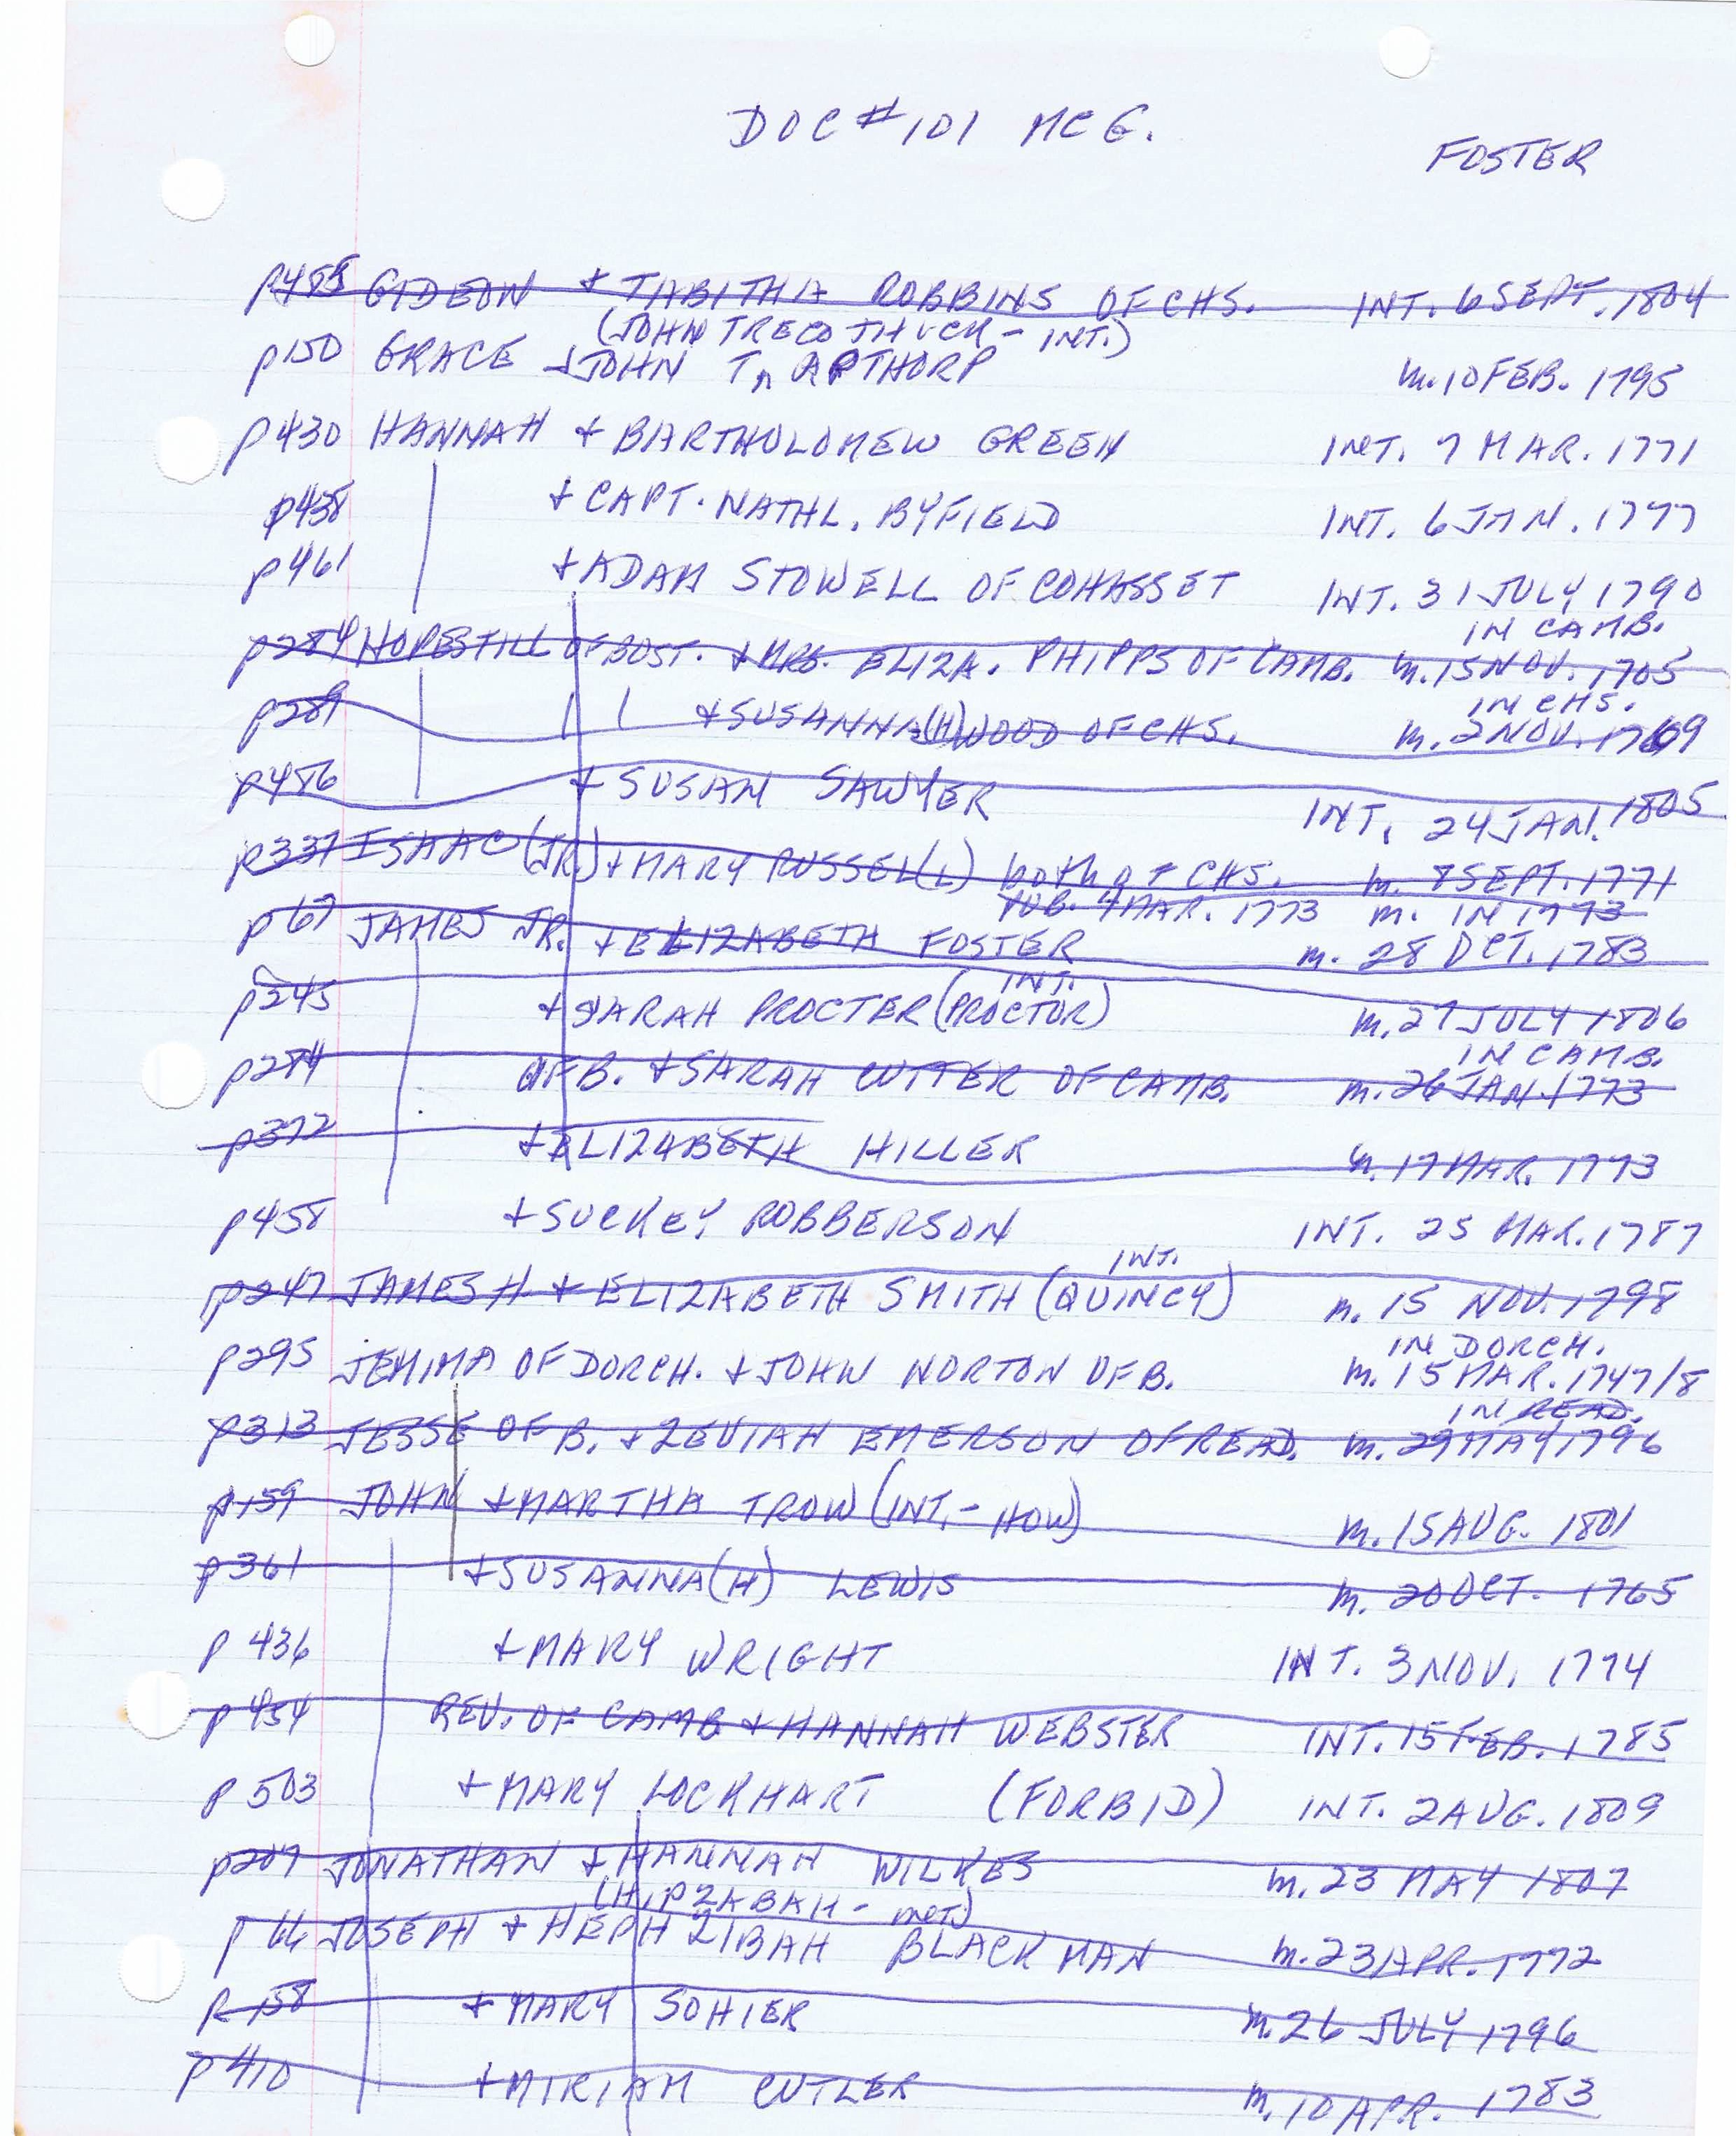 DOC # 101 MCG.
FOSTER
p485 GIDEON + TABITHA ROBBINS OF CHS. INT. 6 SEPT. 1804
(JOHN TRECOTHUCK - INT.)
p150 GRACE + JOHN T. APTHORP m. 10 FEB. 1795
p430 HANNAH + BARTHOLOMEW GREEN INT. 7 MAR. 1771
p438 + CAPT. NATHL. BYFIELD INT. 6 JAN. 1777
p461 + ADAM STOWELL OF COHASSET INT. 31 JULY 1790
IN CAMB.
p284 HOPESTILL OF BOST. + MRS. ELIZA. PHIPPS OF CAMB. m. 15 NOV. 1705
IN CHS.
p289 + SUSANNA(H) WOOD OF CHS. m. 2 NOV. 1769
p486 + SUSAN SAWYER INT. 24 JAN. 1805
p337 ISAAC (JR.) + MARY RUSSEL(L) both of CHS. m. 8 SEPT. 1771
PUB. 4 MAR. 1773 m. IN 1773
p67 JAMES JR. + ELIZABETH FOSTER m. 28 OCT. 1783
INT.
p245 + SARAH PROCTER (PROCTOR) m. 27 JULY 1806
IN CAMB.
p284 OF B. + SARAH CUTTER OF CAMB. m. 26 JAN. 1773
p372 + ELIZABETH HILLER m. 17 MAR. 1773
p458 + SUCKEY ROBBERSON INT. 25 MAR. 1787
INT.
p247 JAMES H. + ELIZABETH SMITH (QUINCY) m. 15 NOV. 1798
IN DORCH.
p295 JEMIMA OF DORCH. + JOHN NORTON OF B. m. 15 MAR. 1747/8
IN READ.
p313 JESSE OF B. + ZEVIAH EMERSON OF READ. m. 29 MAY 1796
p159 JOHN + MARTHA TROW (INT. - HOW) m. 15 AUG. 1801
p361 + SUSANNA(H) LEWIS m. 20 OCT. 1765
p 436 + MARY WRIGHT INT. 3 NOV. 1774
p 454 REV. OF CAMB + HANNAH WEBSTER INT. 15 FEB. 1785
p 503 + MARY LOCKHART (FORBID) INT. 2 AUG. 1809
p207 JONATHAN + HANNAH WILKES m. 23 MAY 1807
(HIPZABAH - INT.)
p 66 JOSEPH + HEPHZIBAH BLACKMAN m. 23 APR. 1772
p 158 + MARY SOHIER m. 26 JULY 1796
p 410 + MIRIAM CUTLER m. 10 APR. 1783